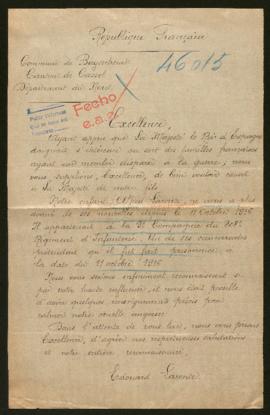 République Française
Commune de Buysscheure
Canton de Cassel
Département du Nord
46015
Fecho
Excellence,
Ayant appris que Sa Majesté le Roi d'Espagne
daignait s'intéresser au sort des familles françaises
ayant un membre disparu à la guerre, nous
vous supplions, Excellence, de bien vouloir
à Sa Majesté de notre fils
Notre enfant, ne nous a plus
donné de ses nouvelles depuis le 11 Octobre 1915
Il appartenait à la Compagnie du
Régiment d'Infanterie. Un de ses camarades
prétendait qu'il fut fait prisonnier à
la date du 11 octobre 1915
Nous vous serions infiniment reconnaissants si
par votre haute influence, il nous était possible
d'avoir quelques renseignements précis pour
calmer notre cruelle angoisse
Dans l'attente de vous lire, nous vous prions
Excellence, d'agréer nos respectueuses salutations
et notre entière reconnaissance.
Edouard